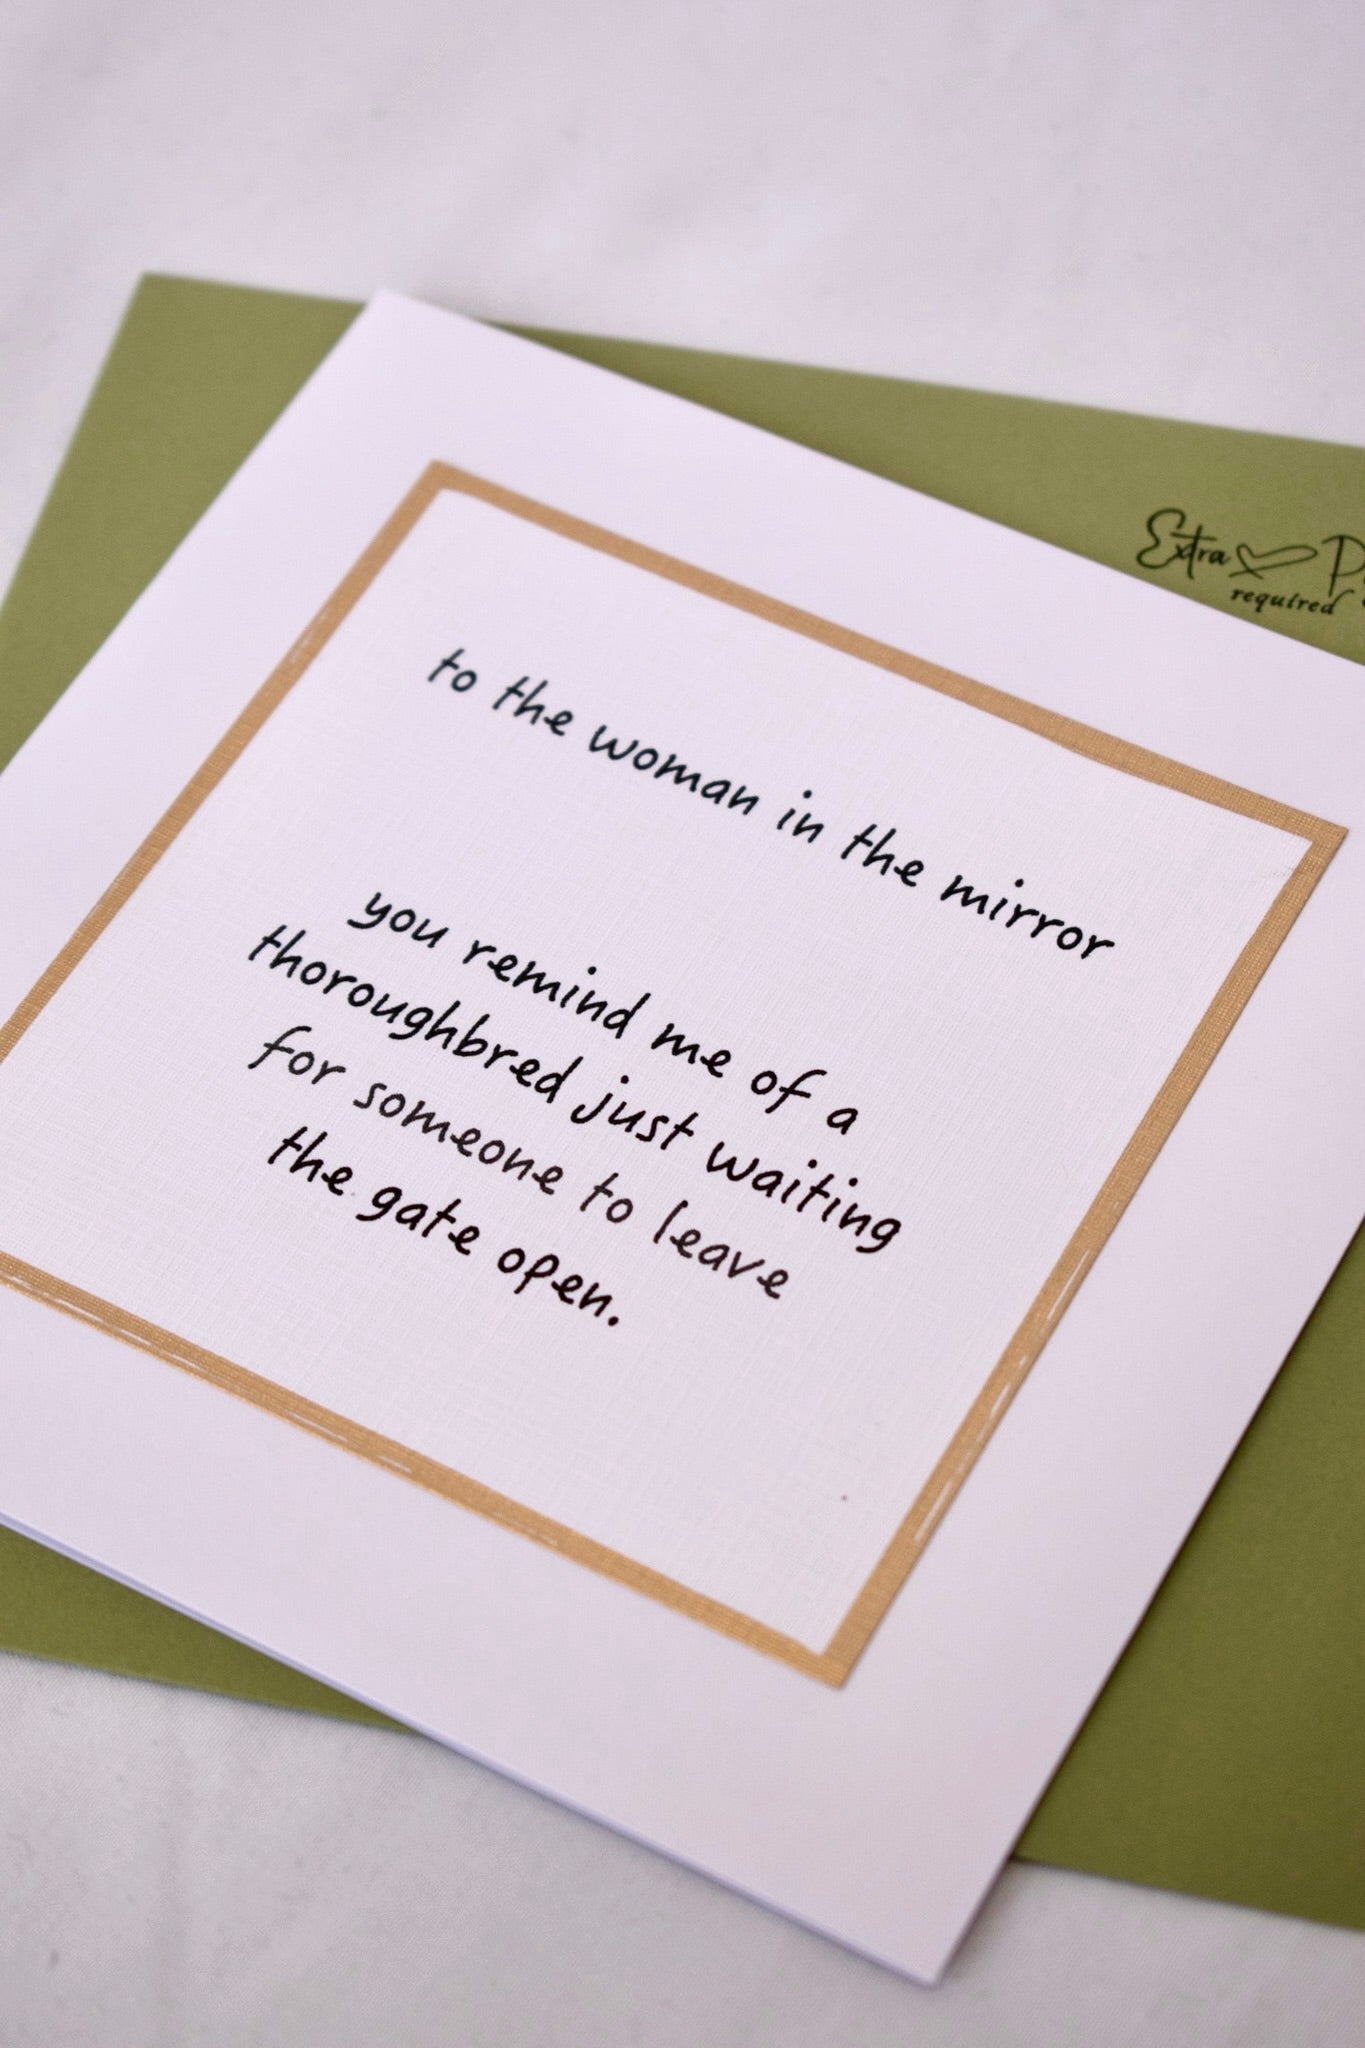 Extra
required
to the woman in the mirror
you remind me of a
thoroughbred just waiting
for someone to leave
the gate open.